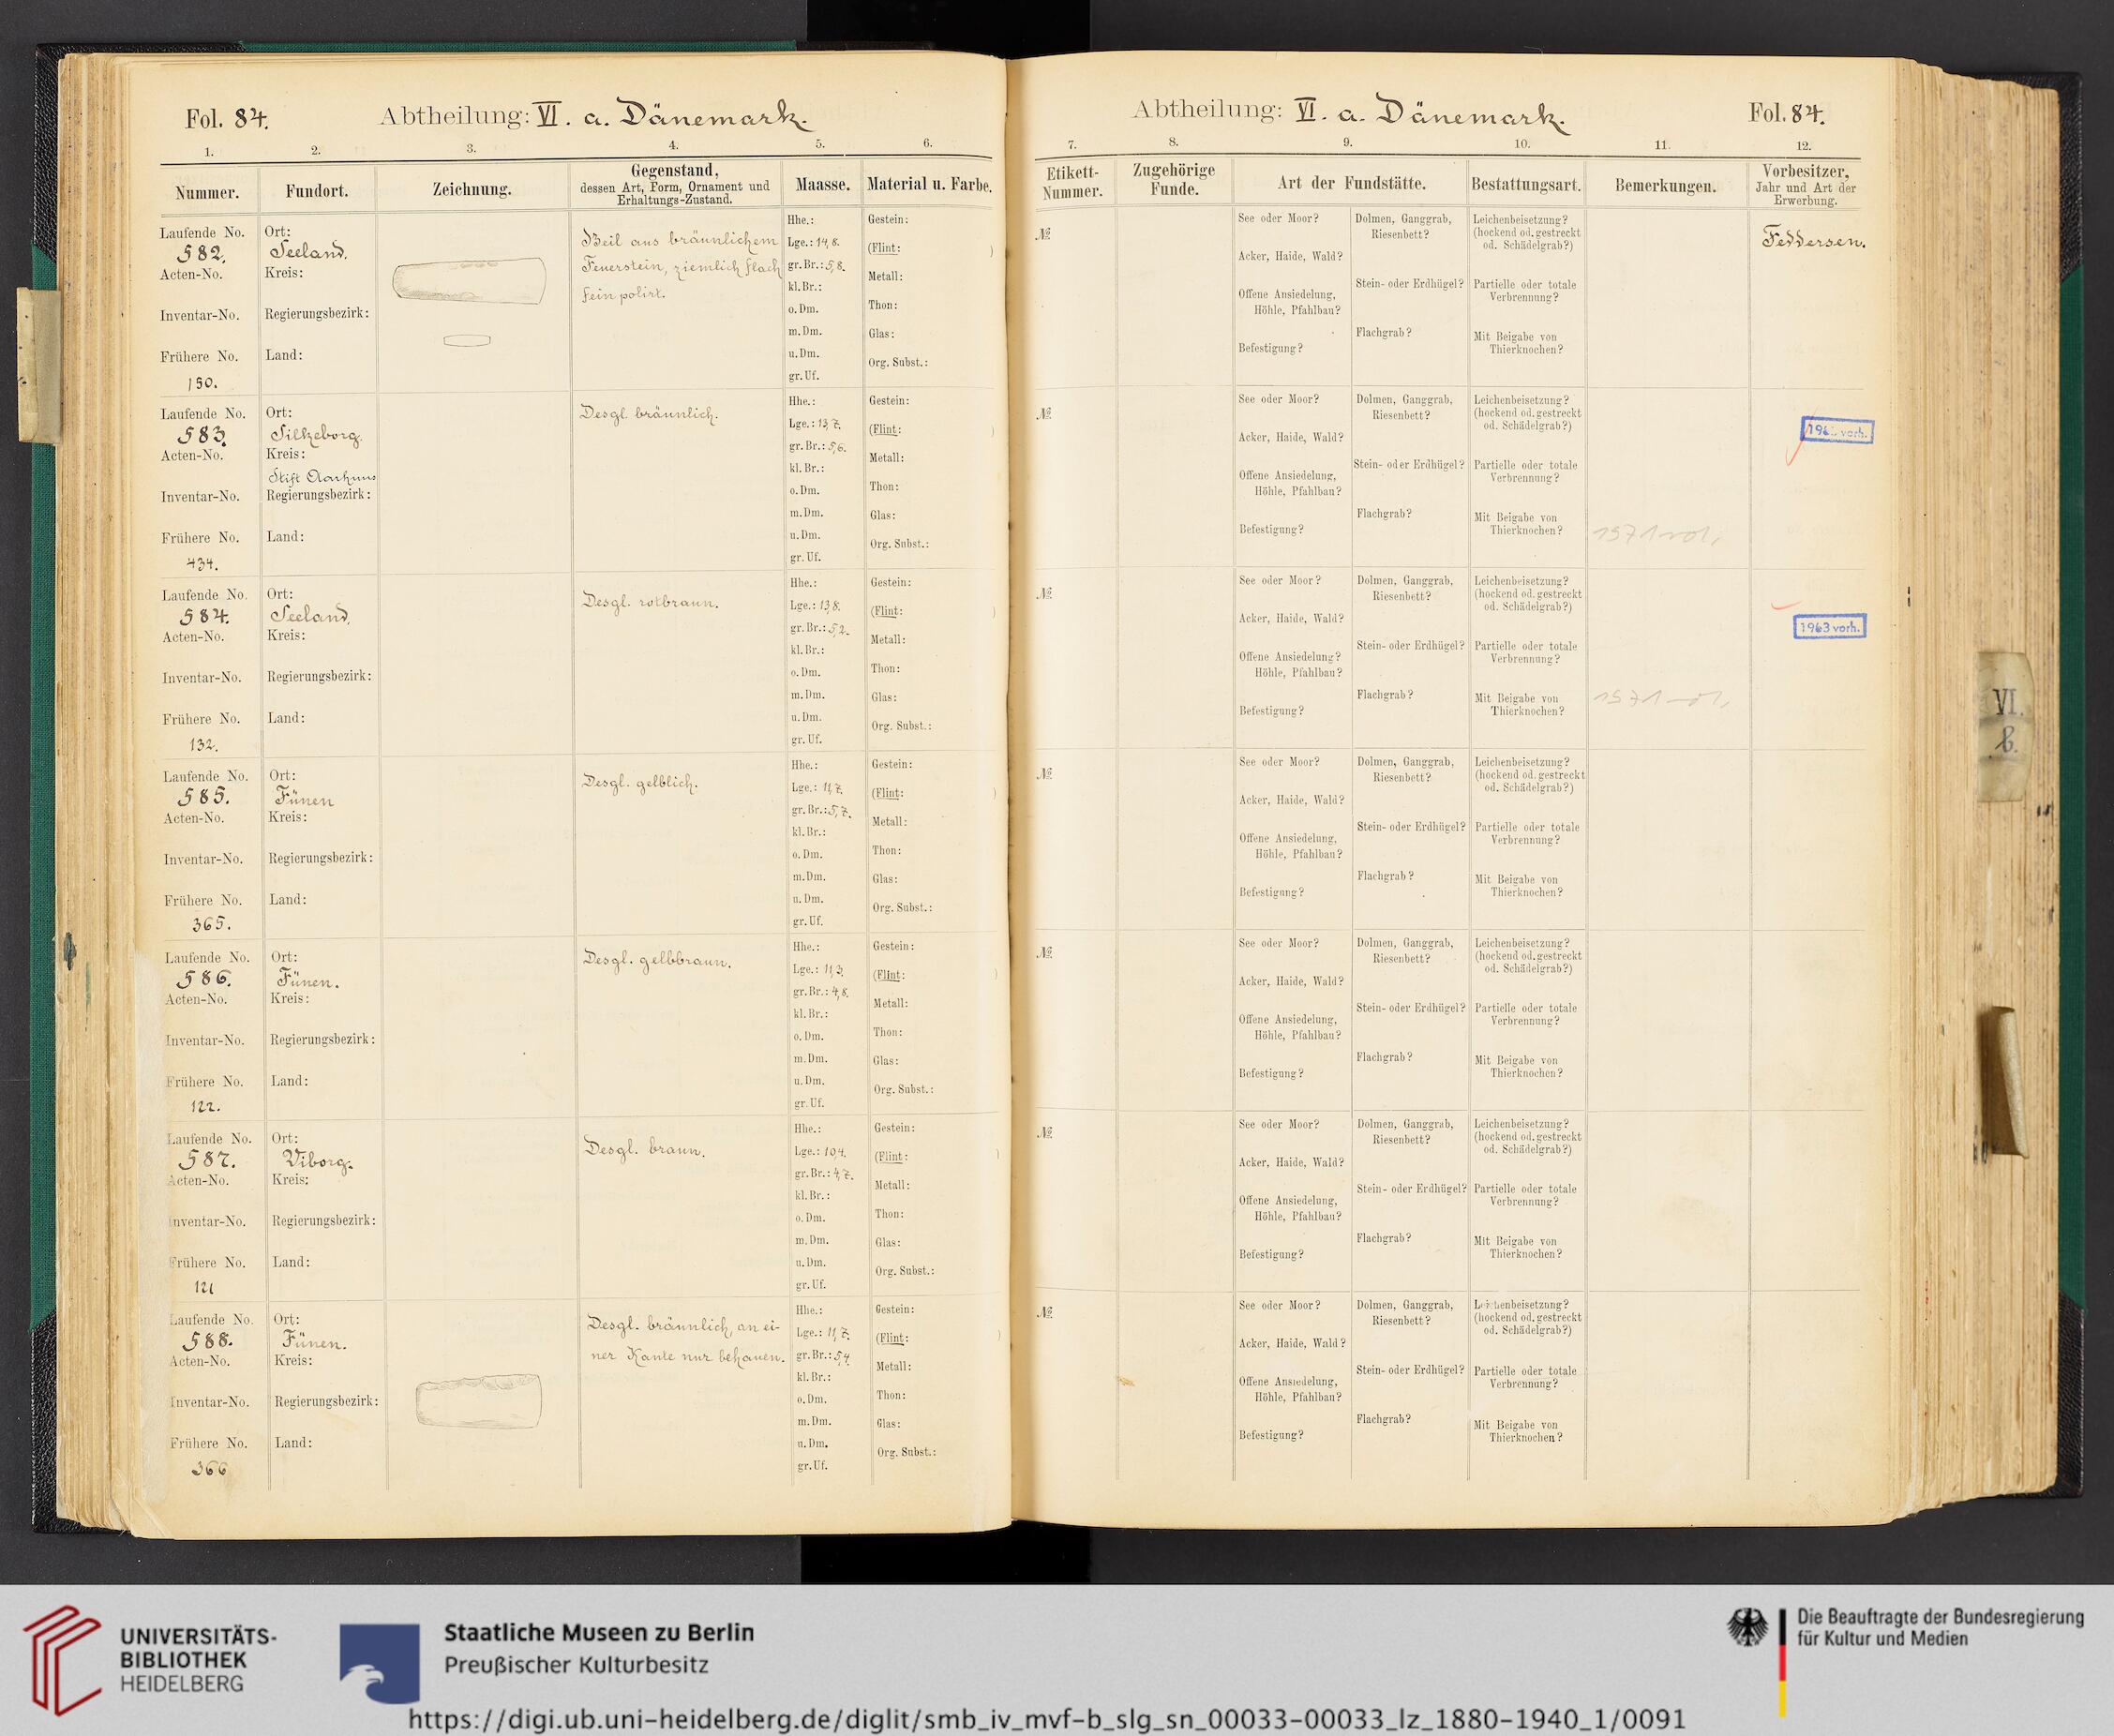 Fol. 84. Abtheilung: VI. a. Dänemark.
1. 2. 3. 4. 5. 6.
Nummer. Fundort. Zeichnung. Gegenstand, dessen Art, Form, Ornament und Erhaltungs-Zustand. Maasse. Material u. Farbe.
Laufende No. 582.
Acten-No.
Inventar-No.
Frühere No. 150.
Ort: Seeland.
Kreis:
Regierungsbezirk:
Land:
Beil aus bräunlichem
Feuerstein, ziemlich flach
fein polirt.
Hhe.:
Lge.: 14,8.
gr. Br.: 5,8.
kl. Br.:
o. Dm.
m. Dm.
u. Dm.
gr. Uf.
Gestein:
(Flint: )
Metall:
Thon:
Glas:
Org. Subst.:
Laufende No. 583.
Acten-No.
Inventar-No.
Frühere No. 434.
Ort: Silkeborg.
Kreis:
Stift Aarhuus
Regierungsbezirk:
Land:
Desgl. bräunlich.
Hhe.:
Lge.: 13,7.
gr. Br.: 5,6.
kl. Br.:
o. Dm.
m. Dm.
u. Dm.
gr. Uf.
Gestein:
(Flint: )
Metall:
Thon:
Glas:
Org. Subst.:
Laufende No. 584.
Acten-No.
Inventar-No.
Frühere No. 132.
Ort: Seeland.
Kreis:
Regierungsbezirk:
Land:
Desgl. rotbraun.
Hhe.:
Lge.: 13,8.
gr. Br.: 5,2.
kl. Br.:
o. Dm.
m. Dm.
u. Dm.
gr. Uf.
Gestein:
(Flint: )
Metall:
Thon:
Glas:
Org. Subst.:
Laufende No. 585.
Acten-No.
Inventar-No.
Frühere No. 365.
Ort: Fünen
Kreis:
Regierungsbezirk:
Land:
Desgl. gelblich.
Hhe.:
Lge.: 11,7.
gr. Br.: 5,7.
kl. Br.:
o. Dm.
m. Dm.
u. Dm.
gr. Uf.
Gestein:
(Flint: )
Metall:
Thon:
Glas:
Org. Subst.:
Laufende No. 586.
Acten-No.
Inventar-No.
Frühere No. 122.
Ort: Fünen.
Kreis:
Regierungsbezirk:
Land:
Desgl. gelbbraun.
Hhe.:
Lge.: 11,3.
gr. Br.: 4,8.
kl. Br.:
o. Dm.
m. Dm.
u. Dm.
gr. Uf.
Gestein:
(Flint: )
Metall:
Thon:
Glas:
Org. Subst.:
Laufende No. 587.
Acten-No.
Inventar-No.
Frühere No. 121
Ort: Viborg.
Kreis:
Regierungsbezirk:
Land:
Desgl. braun.
Hhe.:
Lge.: 10,4.
gr. Br.: 4,7.
kl. Br.:
o. Dm.
m. Dm.
u. Dm.
gr. Uf.
Gestein:
(Flint: )
Metall:
Thon:
Glas:
Org. Subst.:
Laufende No. 588.
Acten-No.
Inventar-No.
Frühere No. 366
Ort: Fünen.
Kreis:
Regierungsbezirk:
Land:
Desgl. bräunlich, an ei-
ner Kante nur behauen.
Hhe.:
Lge.: 11,7.
gr. Br.: 5,4.
kl. Br.:
o. Dm.
m. Dm.
u. Dm.
gr. Uf.
Gestein:
(Flint: )
Metall:
Thon:
Glas:
Org. Subst.:
Abtheilung: VI. a. Dänemark. Fol. 84.
7. 8. 9. 10. 11. 12.
Etikett-Nummer. Zugehörige Funde. Art der Fundstätte. Bestattungsart. Bemerkungen. Vorbesitzer, Jahr und Art der Erwerbung.
№
See oder Moor?
Acker, Haide, Wald?
Offene Ansiedelung,
Höhle, Pfahlbau?
Befestigung?
Dolmen, Ganggrab,
Riesenbett?
Stein- oder Erdhügel?
Flachgrab?
Leichenbeisetzung?
(hockend od. gestreckt
od. Schädelgrab?)
Partielle oder totale
Verbrennung?
Mit Beigabe von
Thierknochen?
Feddersen.
№
See oder Moor?
Acker, Haide, Wald?
Offene Ansiedelung,
Höhle, Pfahlbau?
Befestigung?
Dolmen, Ganggrab,
Riesenbett?
Stein- oder Erdhügel?
Flachgrab?
Leichenbeisetzung?
(hockend od. gestreckt
od. Schädelgrab?)
Partielle oder totale
Verbrennung?
Mit Beigabe von
Thierknochen?
1971
vorh.
№
See oder Moor?
Acker, Haide, Wald?
Offene Ansiedelung?
Höhle, Pfahlbau?
Befestigung?
Dolmen, Ganggrab,
Riesenbett?
Stein- oder Erdhügel?
Flachgrab?
Leichenbeisetzung?
(hockend od. gestreckt
od. Schädelgrab?)
Partielle oder totale
Verbrennung?
Mit Beigabe von
Thierknochen?
1971
1963 vorh.
№
See oder Moor?
Acker, Haide, Wald?
Offene Ansiedelung,
Höhle, Pfahlbau?
Befestigung?
Dolmen, Ganggrab,
Riesenbett?
Stein- oder Erdhügel?
Flachgrab?
Leichenbeisetzung?
(hockend od. gestreckt
od. Schädelgrab?)
Partielle oder totale
Verbrennung?
Mit Beigabe von
Thierknochen?
№
See oder Moor?
Acker, Haide, Wald?
Offene Ansiedelung,
Höhle, Pfahlbau?
Befestigung?
Dolmen, Ganggrab,
Riesenbett?
Stein- oder Erdhügel?
Flachgrab?
Leichenbeisetzung?
(hockend od. gestreckt
od. Schädelgrab?)
Partielle oder totale
Verbrennung?
Mit Beigabe von
Thierknochen?
№
See oder Moor?
Acker, Haide, Wald?
Offene Ansiedelung,
Höhle, Pfahlbau?
Befestigung?
Dolmen, Ganggrab,
Riesenbett?
Stein- oder Erdhügel?
Flachgrab?
Leichenbeisetzung?
(hockend od. gestreckt
od. Schädelgrab?)
Partielle oder totale
Verbrennung?
Mit Beigabe von
Thierknochen?
№
See oder Moor?
Acker, Haide, Wald?
Offene Ansiedelung,
Höhle, Pfahlbau?
Befestigung?
Dolmen, Ganggrab,
Riesenbett?
Stein- oder Erdhügel?
Flachgrab?
Leichenbeisetzung?
(hockend od. gestreckt
od. Schädelgrab?)
Partielle oder totale
Verbrennung?
Mit Beigabe von
Thierknochen?
VI.
b.
UNIVERSITÄTS-
BIBLIOTHEK
HEIDELBERG
Staatliche Museen zu Berlin
Preußischer Kulturbesitz
Die Beauftragte der Bundesregierung
für Kultur und Medien
https://digi.ub.uni-heidelberg.de/diglit/smb_iv_mvf-b_slg_sn_00033-00033_lz_1880-1940_1/0091